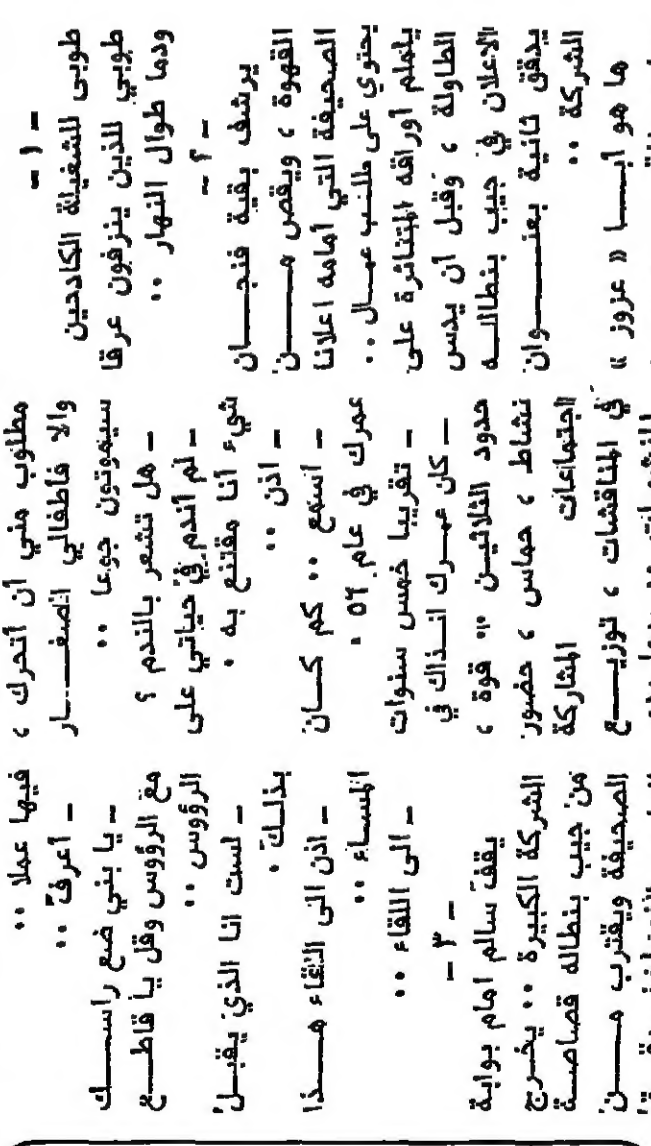 - ١ -
طوبى للشغيلة الكادحين
طوبي للذين ينزفون عرقا
ودما طوال النهار ..
- ٢ -
يرشف بقية فنجـــان
القهوة ، ويقص مــــن
الصحيفة التي أمامه اعلانا
يحتوي على طلب عمـال ..
يلملم أوراقه المتناثرة على
الطاولة ، وقبل أن يدس
الاعلان في جيب بنطالــه
يدقق ثانية بعنـــوان
الشركة ..
ها هو أيـــا « عزوز »
مطلوب مني أن أتحرك ،
والا فأطفالي الصغـــار
سيموتون جوعا ..
- هل تشعر بالندم ؟
- لم أندم في حياتي على
شيء أنا مقتنع به .
- اذن ..
- اسمع .. كم كــان
عمرك في عام ٥٦ .
- تقريبا خمس سنوات
- كان عمـرك انــذاك في
حدود الثلاثين .. قوة ،
نشاط ، حماس ، حضور
اجتماعات المشاركة
في المناقشات ، توزيـــع
فيها عملا ..
- أعرف ..
- يا بني ضع راســك
مع الرؤوس وقل يا قاطـــع
الرؤوس ..
- لست انا الذي يقبـل
بذلـك .
- اذن الى اللقاء هــذا
المساء ..
- الى اللقاء ..
- ٣ -
يقف سالم امام بوابة
الشركة الكبيرة .. يخـرج
من جيب بنطاله قصاصــة
الصحيفة ويقترب مــــن